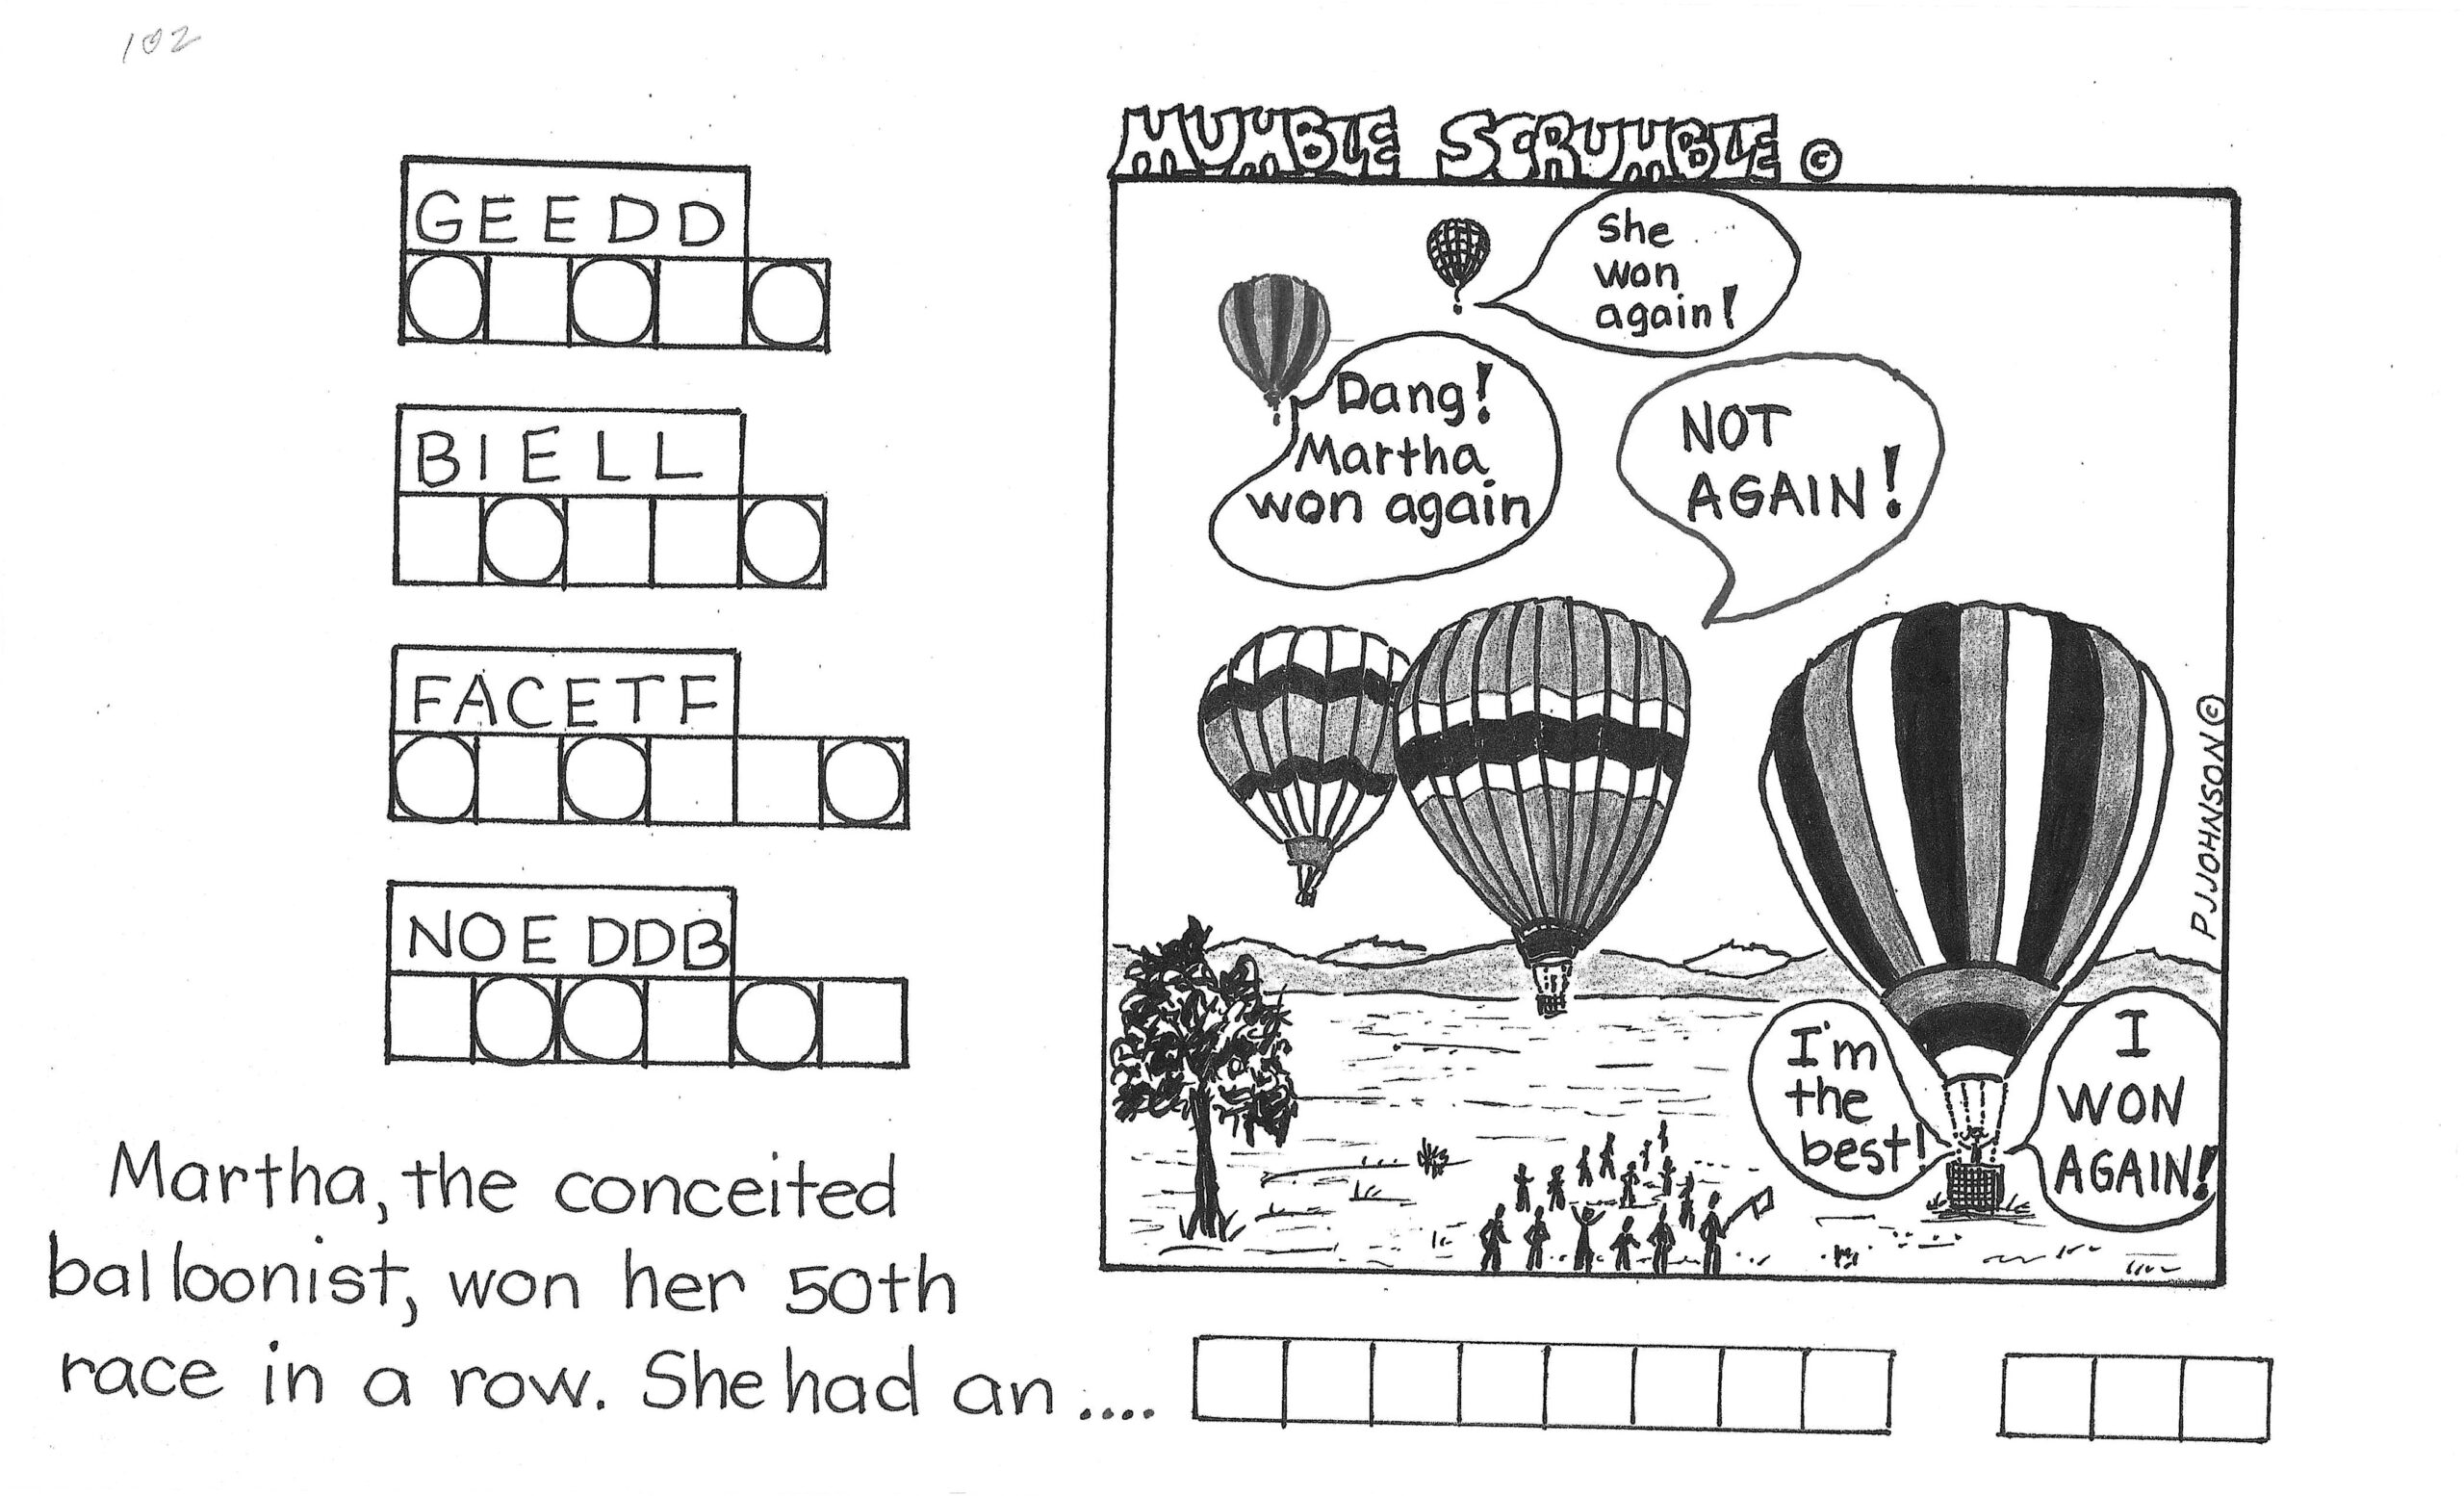 102
MUMBLE SCRUMBLE ©
GEEDD
BIELL
FACETF
NOEDDB
She
won
again!
Dang!
Martha
won again
NOT
AGAIN!
I'm
the
best!
I
WON
AGAIN!
PJJOHNSON ©
Martha, the conceited
balloonist, won her 50th
race in a row. She had an ....